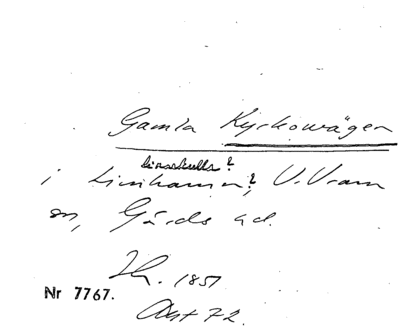 Gamla Kyrkovägen
linskulla?
i Linihamn?, V. Vram
sn, Gärds hd.
Ih. 1851
Nr 7767.
Akt 72.